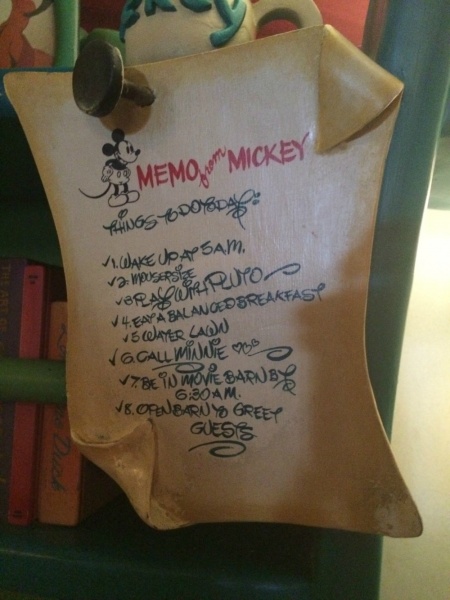 MEMO from MICKEY
THINGS TO DO TODAY:
✓1. WAKE UP AT 5 A.M.
✓2. MOUSERSIZE
✓3. PLAY WITH PLUTO
✓4. EAT A BALANCED BREAKFAST
✓5. WATER LAWN
✓6. CALL MINNIE
✓7. BE IN MOVIE BARN BY
6:30 A.M.
✓8. OPEN BARN TO GREET
GUESTS